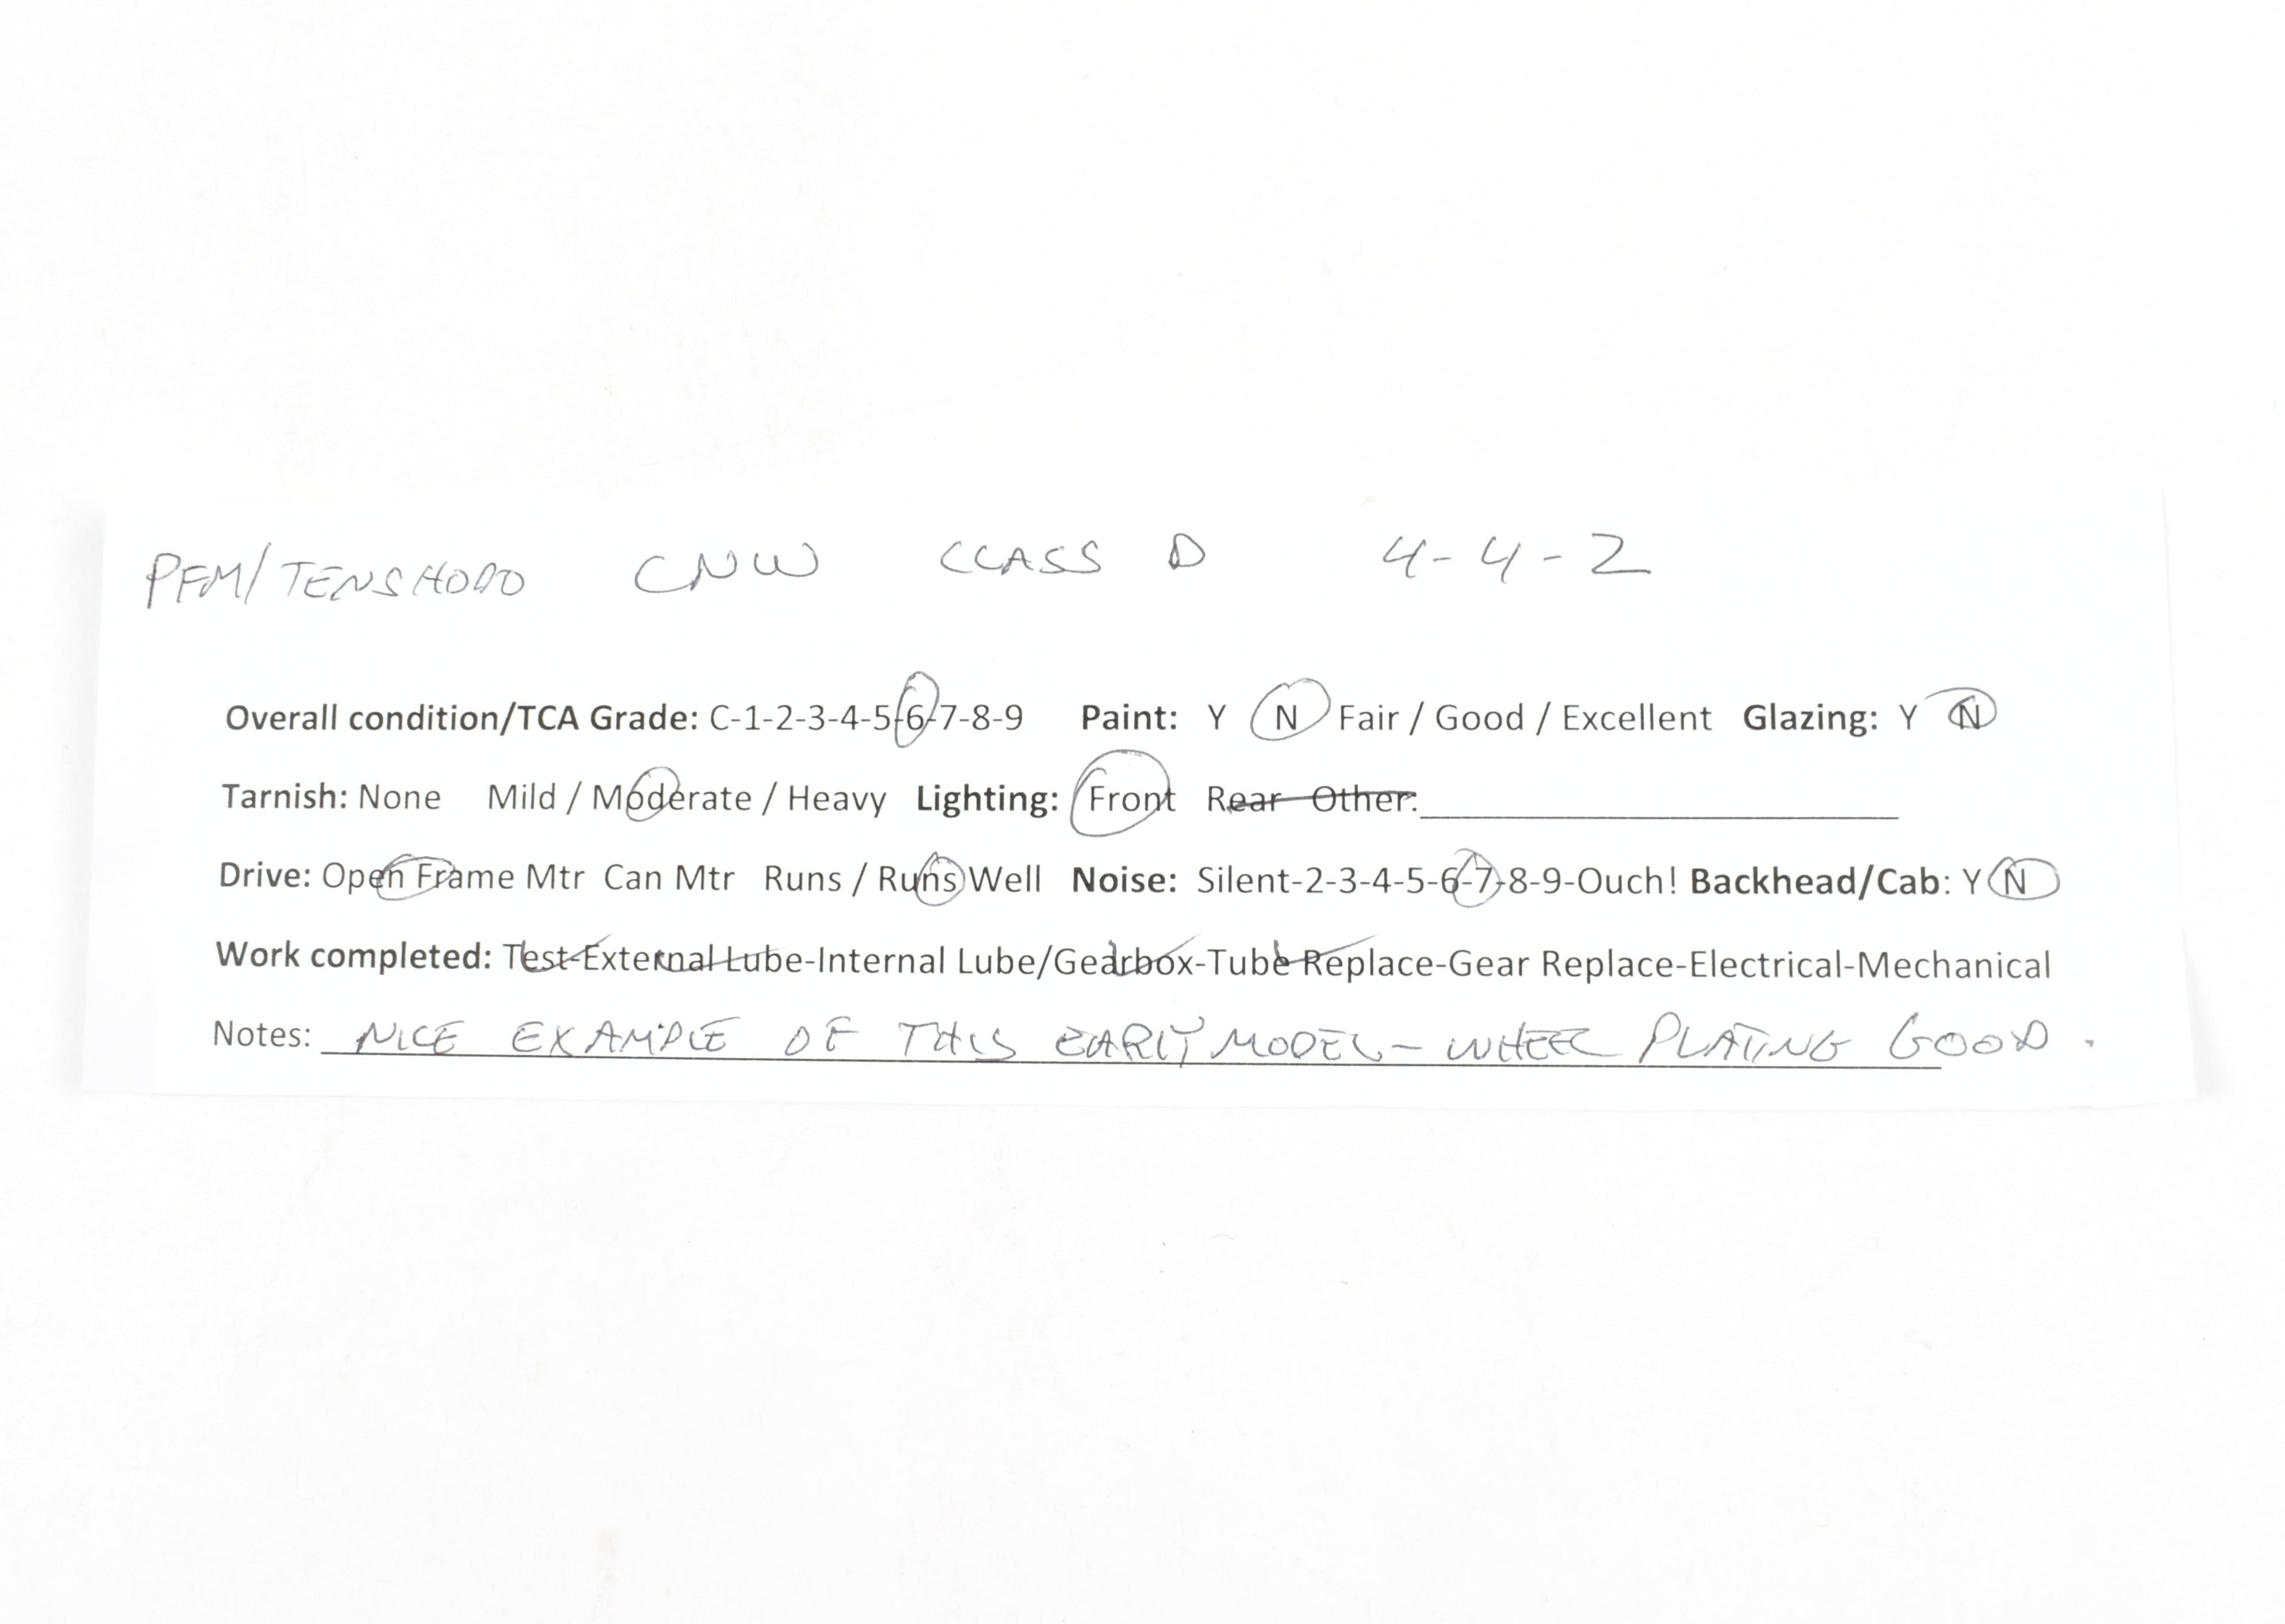 PFM/TENSHODO CNW CLASS D 4-4-2
Overall condition/TCA Grade: C-1-2-3-4-5-6-7-8-9 Paint: Y N Fair / Good / Excellent Glazing: Y N
Tarnish: None Mild / Moderate / Heavy Lighting: Front Rear Other:
Drive: Open Frame Mtr Can Mtr Runs / Runs Well Noise: Silent-2-3-4-5-6-7-8-9-Ouch! Backhead/Cab: Y N
Work completed: Test-External Lube-Internal Lube/Gearbox-Tube Replace-Gear Replace-Electrical-Mechanical
Notes: NICE EXAMPLE OF THIS EARLY MODEL - WHEEL PLATING GOOD.